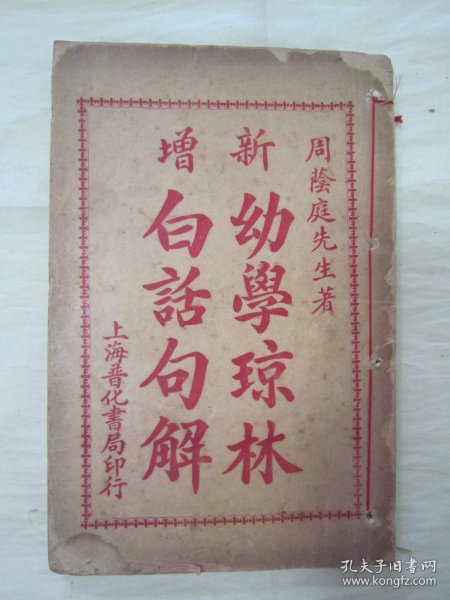 周蔭庭先生著
新幼學琼林
增白話句解
上海普化書局印行
孔夫子旧书网
www.kongfz.com